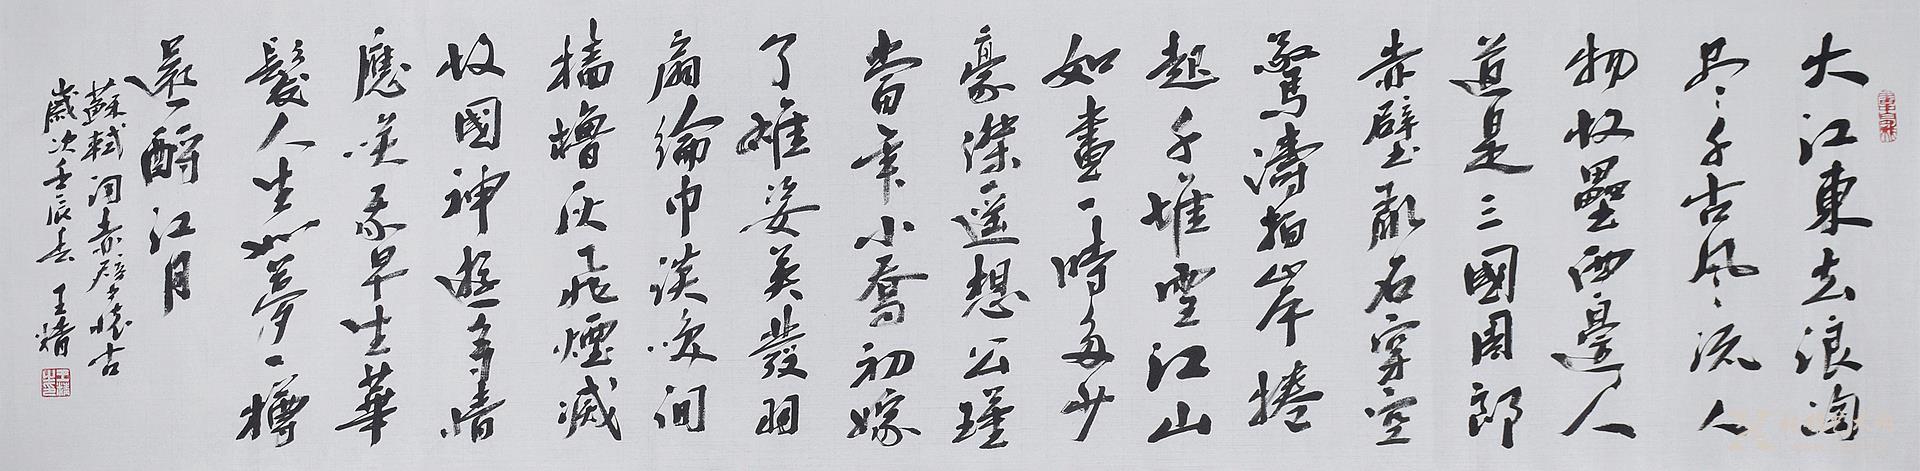 大江東去浪淘
尽千古风流人
物故壘西邊人
道是三國周郎
赤壁亂石穿空
驚濤拍岸捲
起千堆雪江山
如畫一時多少
豪傑遥想公瑾
當年小喬初嫁
了雄姿英發羽
扇綸巾談笑間
檣櫓灰飛煙滅
故國神遊多情
應笑我早生華
髮人生如夢一樽
還酹江月
蘇軾詞赤壁懷古
歲次壬辰春 王